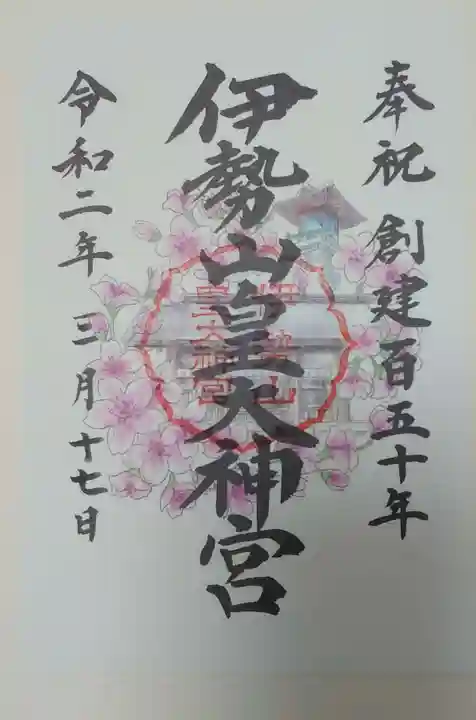 奉祝 創建百五十年
伊勢山皇大神宮
伊勢山
皇大神宮
令和二年 三月十七日